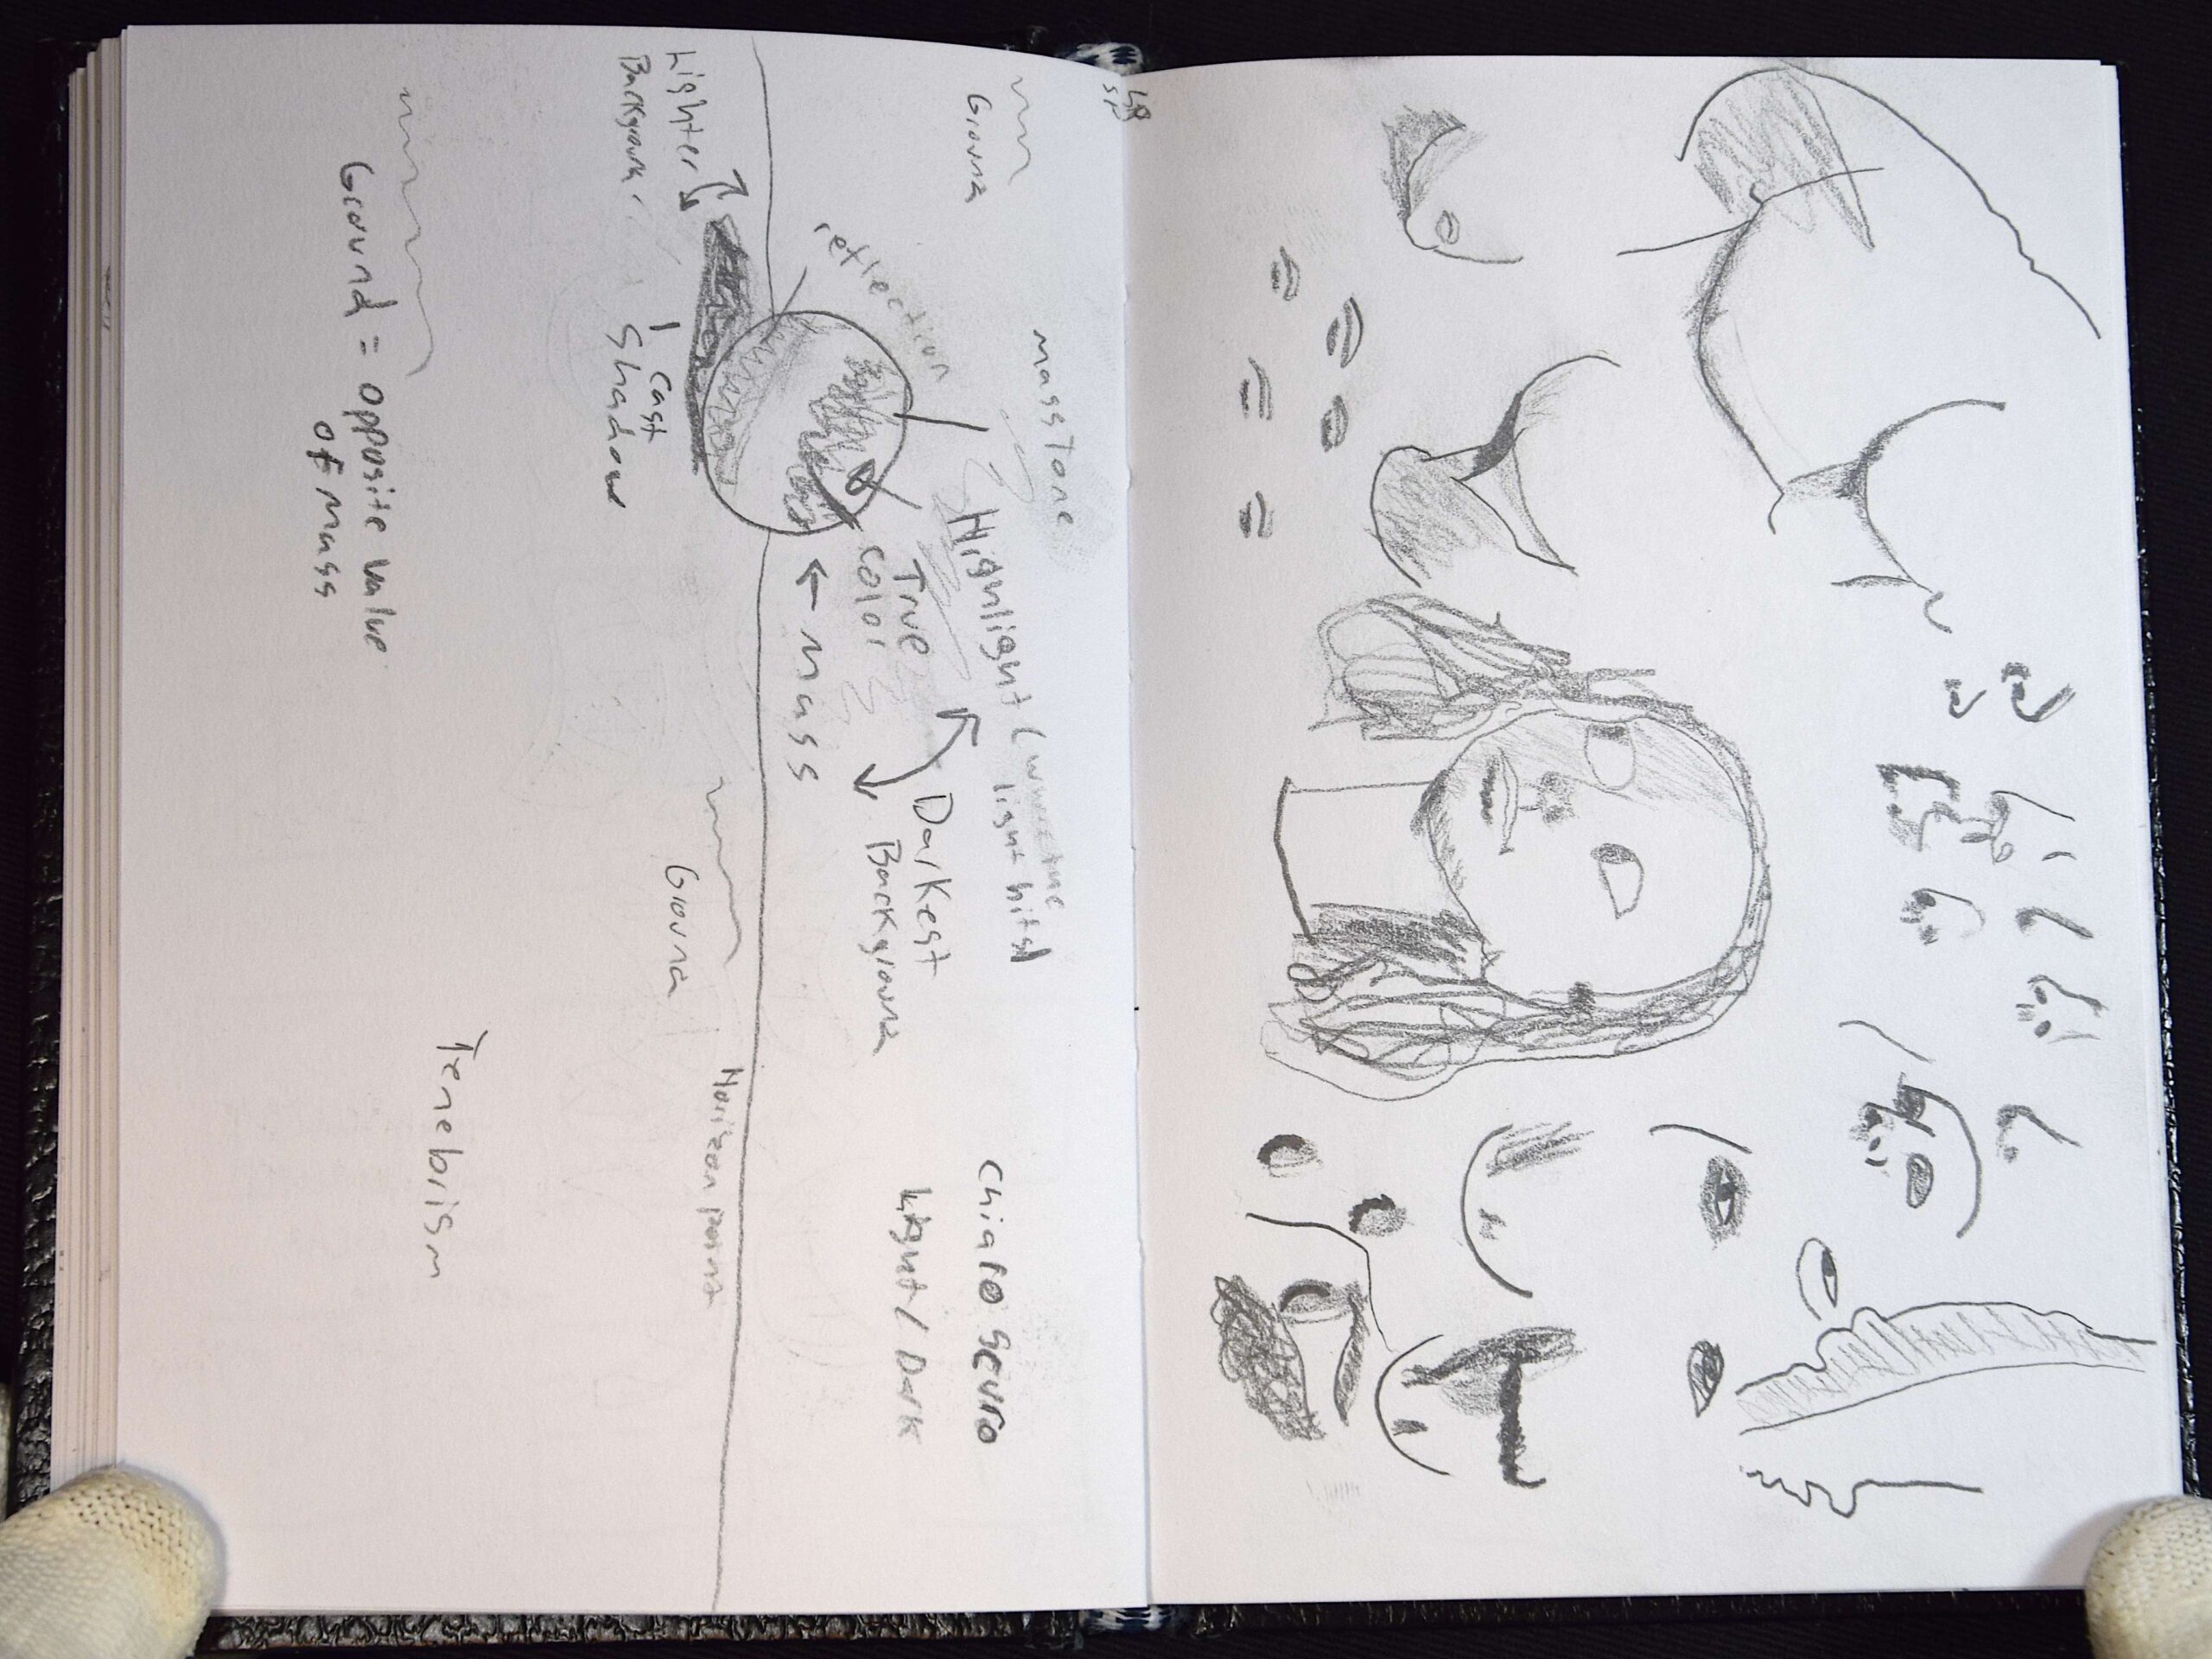 masstone
Ground
Highlight (where the
light hits)
Chiaro scuro
Light / Dark
reflection
True
color
Darkest
Background
← mass
Lighter
Background
cast
shadow
Ground
Horizon point
Ground = opposite value
of mass
Tenebrism